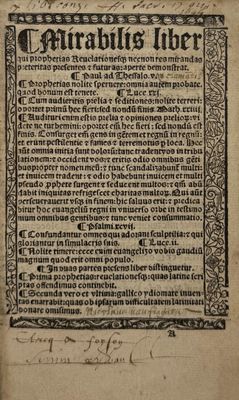 ¶ Mirabilis liber
qui prophetias Reuelationesqꝫ necnon res mirandas
preteritas presentes ⁊ futuras: aperte demonstrat.
¶ Paul ad Thessalo. v.
¶ Prophetias nolite spernere: omnia autem probate.
quod bonum est tenete. ¶ Luce. xxi.
¶ Cum audieritis prelia ⁊ seditiones: nolite terreri.
oportet primū hec fieri: sed nondū finis. Math. xxiiij.
¶ Audituri enim estis prelia ⁊ opiniones prelioꝝ: vi
dete ne turbemini: oportet eīm hec fieri: sed nondū est
finis. Consurget enī gens in gētem: et regnū in regnū:
et erunt pestilentie ⁊ fames ⁊ terremotus ꝑ loca. Hec
autē omnia initia sunt doloꝝ: tunc tradent vos in tribu
lationem: ⁊ occident vos: ⁊ eritis odio omnibus gēti
bus propter nomen meū: ⁊ tunc scandalizabunt multi:
et inuicem tradent: ⁊ odio habebunt inuicem: et multi
pseudo ꝓphete surgent ⁊ seducent multos: ⁊ qm̄ abū
dabit iniquitas refrigescet charitas multoꝝ. Qui aut̄
perseuerauerit vsqꝫ in finem: hic saluus erit: ⁊ predica
bitur hoc euangeliū regni in vniuerso orbe in testimo
nium omnibus gentibus: ⁊ tunc veniet consummatio.
¶ Psalmi. xcvij.
¶ Confundantur omnes qui adorant sculptilia: ⁊ qui
gloriantur in simulacris suis. ¶ Luce. ij.
¶ Nolite timere: ecce enim euangelizo vobis gaudiū
magnum quod erit omni populo.
¶ In duas partes presens liber distinguetur.
¶ Prima prophetias reuelationesqꝫ: quas latine scri
ptas offendimus continebit.
¶ Secunda vero et vltima: gallico ydiomate inuen
tas enarrabit: quas ob ipsarum difficultatem latinitati
donare omisimus.
A